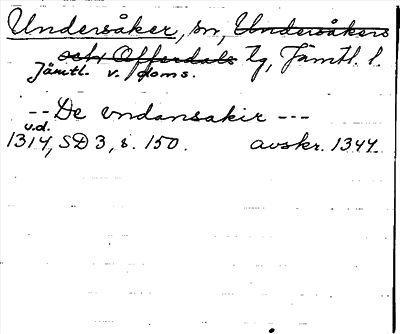 Undersåker, sn, Undersåkers
och Offerdals tg, Jämtl. l.
Jämtl. v. doms.
-- De vndansakir ---
v.d.
1314, SD 3, s. 150. avskr. 1344.